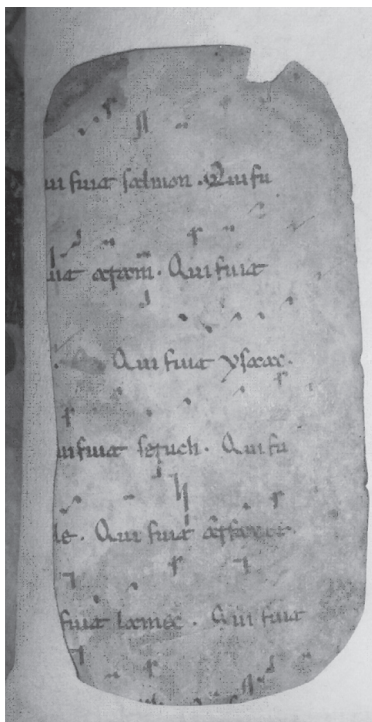 ui fuit salmon. Qui fu
uit aram. Qui fuit
Qui fuit ysaac.
ui fuit seruch. Qui fu
le. Qui fuit
fuit lamec. Qui fuit